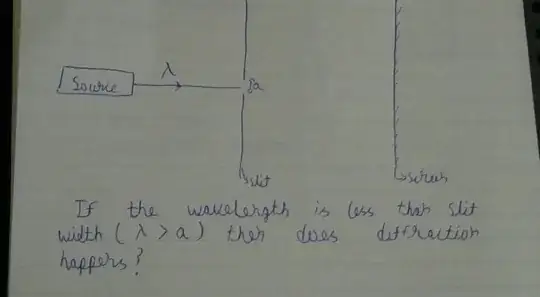 λ
Source
}a
slit
screen
If the wavelength is less than slit
width (λ > a) then does diffraction
happens?